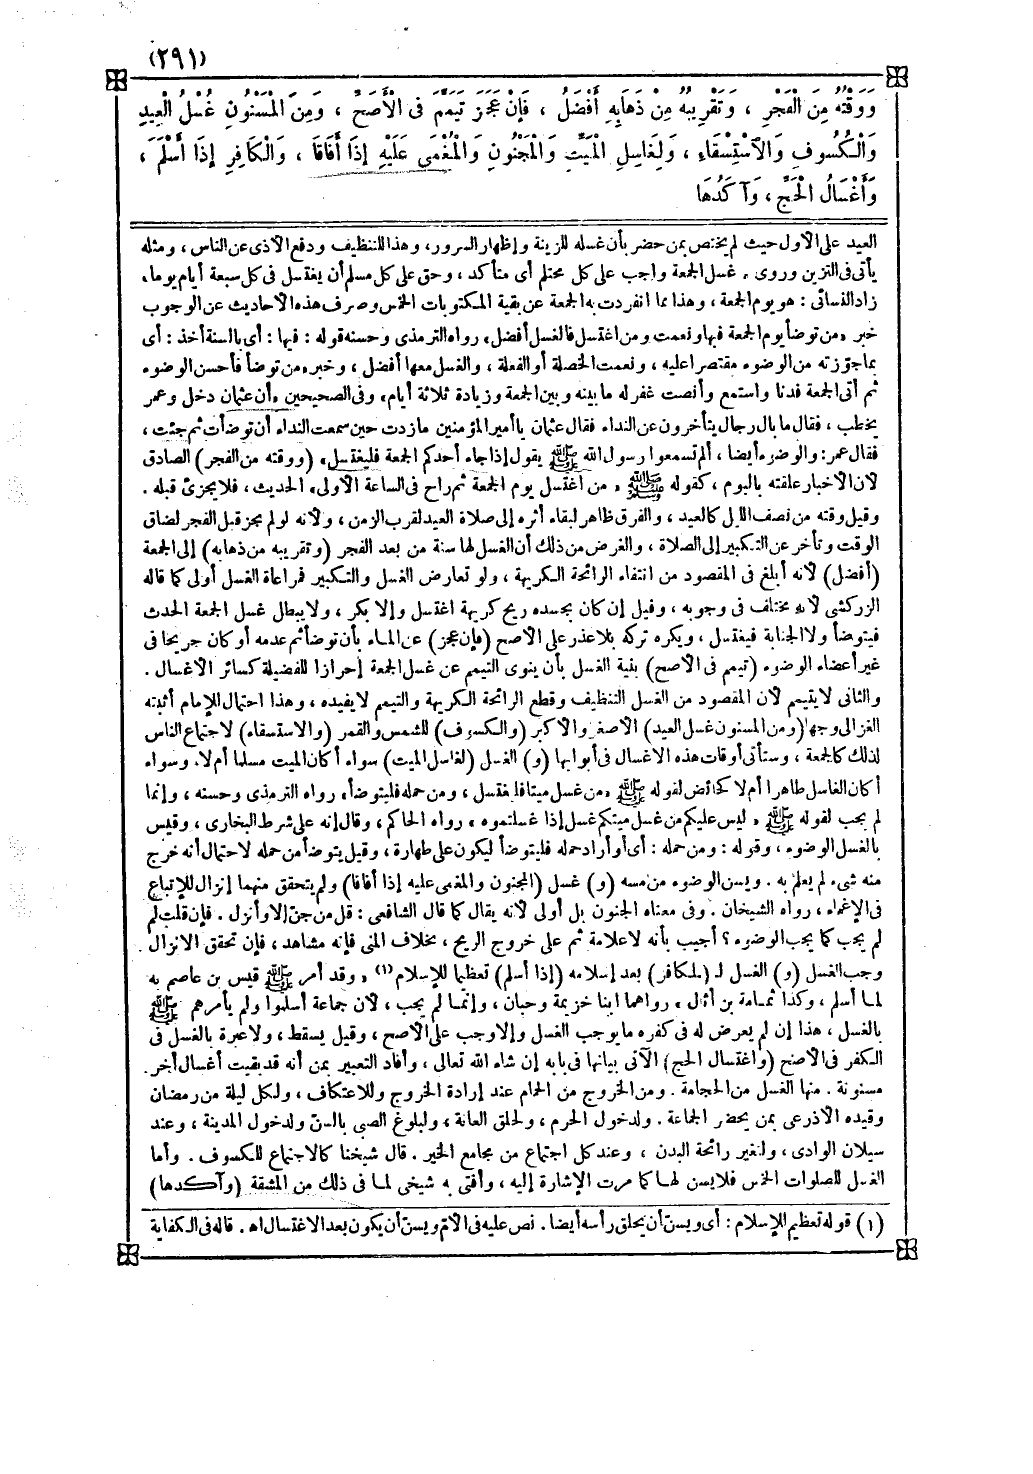 (٢٩١)
وَوَقْتُهُ مِنَ الْفَجْرِ ، وَتَقْرِيبُهُ مِنْ ذَهَابِهِ أَفْضَلُ ، فَإِنْ عَجَزَ تَيَمَّمَ فِى الْأَصَحِّ ، وَمِنَ الْمَسْنُونِ غُسْلُ الْعِيدِ
وَالْكُسُوفِ وَالْاَسْتِسْقَاءِ ، وَلِغَاسِلِ الْمَيِّتِ وَالْمَجْنُونِ وَالْمُغْمَى عَلَيْهِ إِذَا أَفَاقَا ، وَالْكَافِرِ إِذَا أَسْلَمَ ،
وَأَغْسَالُ الْحَجِّ ، وَآكَدُهَا
العيد على الأول حيث لم يختص بمن حضر بأن غسله للزينة وإظهار السرور ، وهذا للتنظيف ودفع الأذى عن الناس ، ومثله
يأتى فى التزين وروى « غسل الجمعة واجب على كل محتلم أى متأكد ، وحق على كل مسلم أن يغتسل فى كل سبعة أيام يوما ،
زاد النسائى : هو يوم الجمعة ، وهذا مما انفردت به الجمعة عن بقية المكتوبات الخمس وصرف هذه الأحاديث عن الوجوب
خبر « من توضأ يوم الجمعة فبها ونعمت ومن اغتسل فالغسل أفضل » رواه الترمذى وحسنه قوله : فبها : أى بالسنة أخذ : أى
بما جوزته من الوضوء مقتصرا عليه ، ونعمت الخصلة أو الفعلة ، والغسل معها أفضل ، وخبر « من توضأ فأحسن الوضوء
ثم أتى الجمعة فدنا واستمع وأنصت غفر له ما بينه وبين الجمعة وزيادة ثلاثة أيام » وفى الصحيحين « أن عثمان دخل وعمر
يخطب ، فقال ما بال رجال يتأخرون عن النداء فقال عثمان يا أمير المؤمنين ما زدت حين سمعت النداء أن توضأت ثم جئت ،
فقال عمر : والوضوء أيضا ، ألم تسمعوا رسول الله ﷺ يقول إذا جاء أحدكم الجمعة فليغتسل » (ووقته من الفجر) الصادق
لأن الأخبار علقته باليوم ، كقوله ﷺ « من اغتسل يوم الجمعة ثم راح فى الساعة الأولى » الحديث ، فلا يجزئ قبله .
وقيل وقته من نصف الليل كالعيد ، والفرق ظاهر لبقاء أثره إلى صلاة العيد لقرب الزمن ، ولأنه لو لم يجز قبل الفجر لضاق
الوقت وتأخر عن التبكير إلى الصلاة ، والغرض من ذلك أن الغسل لها سنة من بعد الفجر (وتقريبه من ذهابه) إلى الجمعة
(أفضل) لأنه أبلغ فى المقصود من انتفاء الرائحة الكريهة ، ولو تعارض الغسل والتبكير فمراعاة الغسل أولى كما قاله
الزركشى لأنه مختلف فى وجوبه ، وقيل إن كان بجسده ريح كريهة اغتسل وإلا بكر ، ولا يبطل غسل الجمعة الحدث
فيتوضأ ولا الجنابة فيغتسل ، ويكره تركه بلا عذر على الأصح (فإن عجز) عن الماء بأن توضأ ثم عدمه أو كان جريحا فى
غير أعضاء الوضوء (تيمم فى الأصح) بنية الغسل بأن ينوى التيمم عن غسل الجمعة إحرازا للفضيلة كسائر الأغسال .
والثانى لا يتيمم لأن المقصود من الغسل التنظيف وقطع الرائحة الكريهة والتيمم لا يفيده ، وهذا احتمال للإمام أثبته
الغزالى وجها (ومن المسنون غسل العيد) الأصغر والأكبر (والكسوف) للشمس والقمر (والاستسقاء) لاجتماع الناس
لذلك كالجمعة ، وستأتى أوقات هذه الأغسال فى أبوابها (و) الغسل (لغاسل الميت) سواء أكان الميت مسلما أم لا ، وسواء
أكان الغاسل طاهرا أم لا كحائض لقوله ﷺ « من غسل ميتا فليغتسل ، ومن حمله فليتوضأ » رواه الترمذى وحسنه ، وإنما
لم يجب لقوله ﷺ « ليس عليكم من غسل ميتكم غسل إذا غسلتموه » رواه الحاكم ، وقال إنه على شرط البخارى ، وقيس
بالغسل الوضوء ، وقوله : ومن حمله : أى أو أراد حمله فليتوضأ ليكون على طهارة ، وقيل يتوضأ من حمله لاحتمال أنه خرج
منه شىء لم يعلم به . ويسن الوضوء من مسه (و) غسل (المجنون والمغمى عليه إذا أفاقا) ولم يتحقق منهما إنزال للإتباع
فى الإغماء ، رواه الشيخان . وفى معناه الجنون بل أولى لأنه يقال كما قال الشافعى : قل من جن إلا وأنزل . فإن قلت لم
لم يجب كما يجب الوضوء ؟ أجيب بأنه لا علامة ثم على خروج الريح ، بخلاف المنى فإنه مشاهد ، فإن تحقق الإنزال
وجب الغسل (و) الغسل لـ (لكافر) بعد إسلامه (إذا أسلم) تعظيما للإسلام (١) « وقد أمر ﷺ قيس بن عاصم به
لما أسلم ، وكذا ثمامة بن أثال » رواهما ابنا خزيمة وحبان ، وإنما لم يجب ، لأن جماعة أسلموا ولم يأمرهم ﷺ
بالغسل ، هذا إن لم يعرض له فى كفره ما يوجب الغسل وإلا وجب على الأصح ، وقيل يسقط ، ولا عبرة بالغسل فى
الكفر فى الأصح (واغتسال الحج) الآتى بيانها فى بابه إن شاء الله تعالى ، وأفاد التعبير بمن أنه قد بقيت أغسال أخر .
مسنونة . منها الغسل من الحجامة . ومن الخروج من الحمام عند إرادة الخروج وللاعتكاف ، ولكل ليلة من رمضان
وقيده الأذرعى بمن يحضر الجماعة . ولدخول الحرم ، ولحلق العانة ، ولبلوغ الصبى بالسن ولدخول المدينة ، وعند
سيلان الوادى ، ولتغير رائحة البدن ، وعند كل اجتماع من مجامع الخير . قال شيخنا كالاجتماع للكسوف . وأما
الغسل للصلوات الخمس فلا يسن لها كما مرت الإشارة إليه ، وأفتى به شيخى لما فى ذلك من المشقة (وآكدها)
(١) قوله تعظيم للإسلام : أى ويسن أن يحلق رأسه أيضا . نص عليه فى الأم ويسن أن يكون بعد الاغتسال اه . قاله فى الكفاية